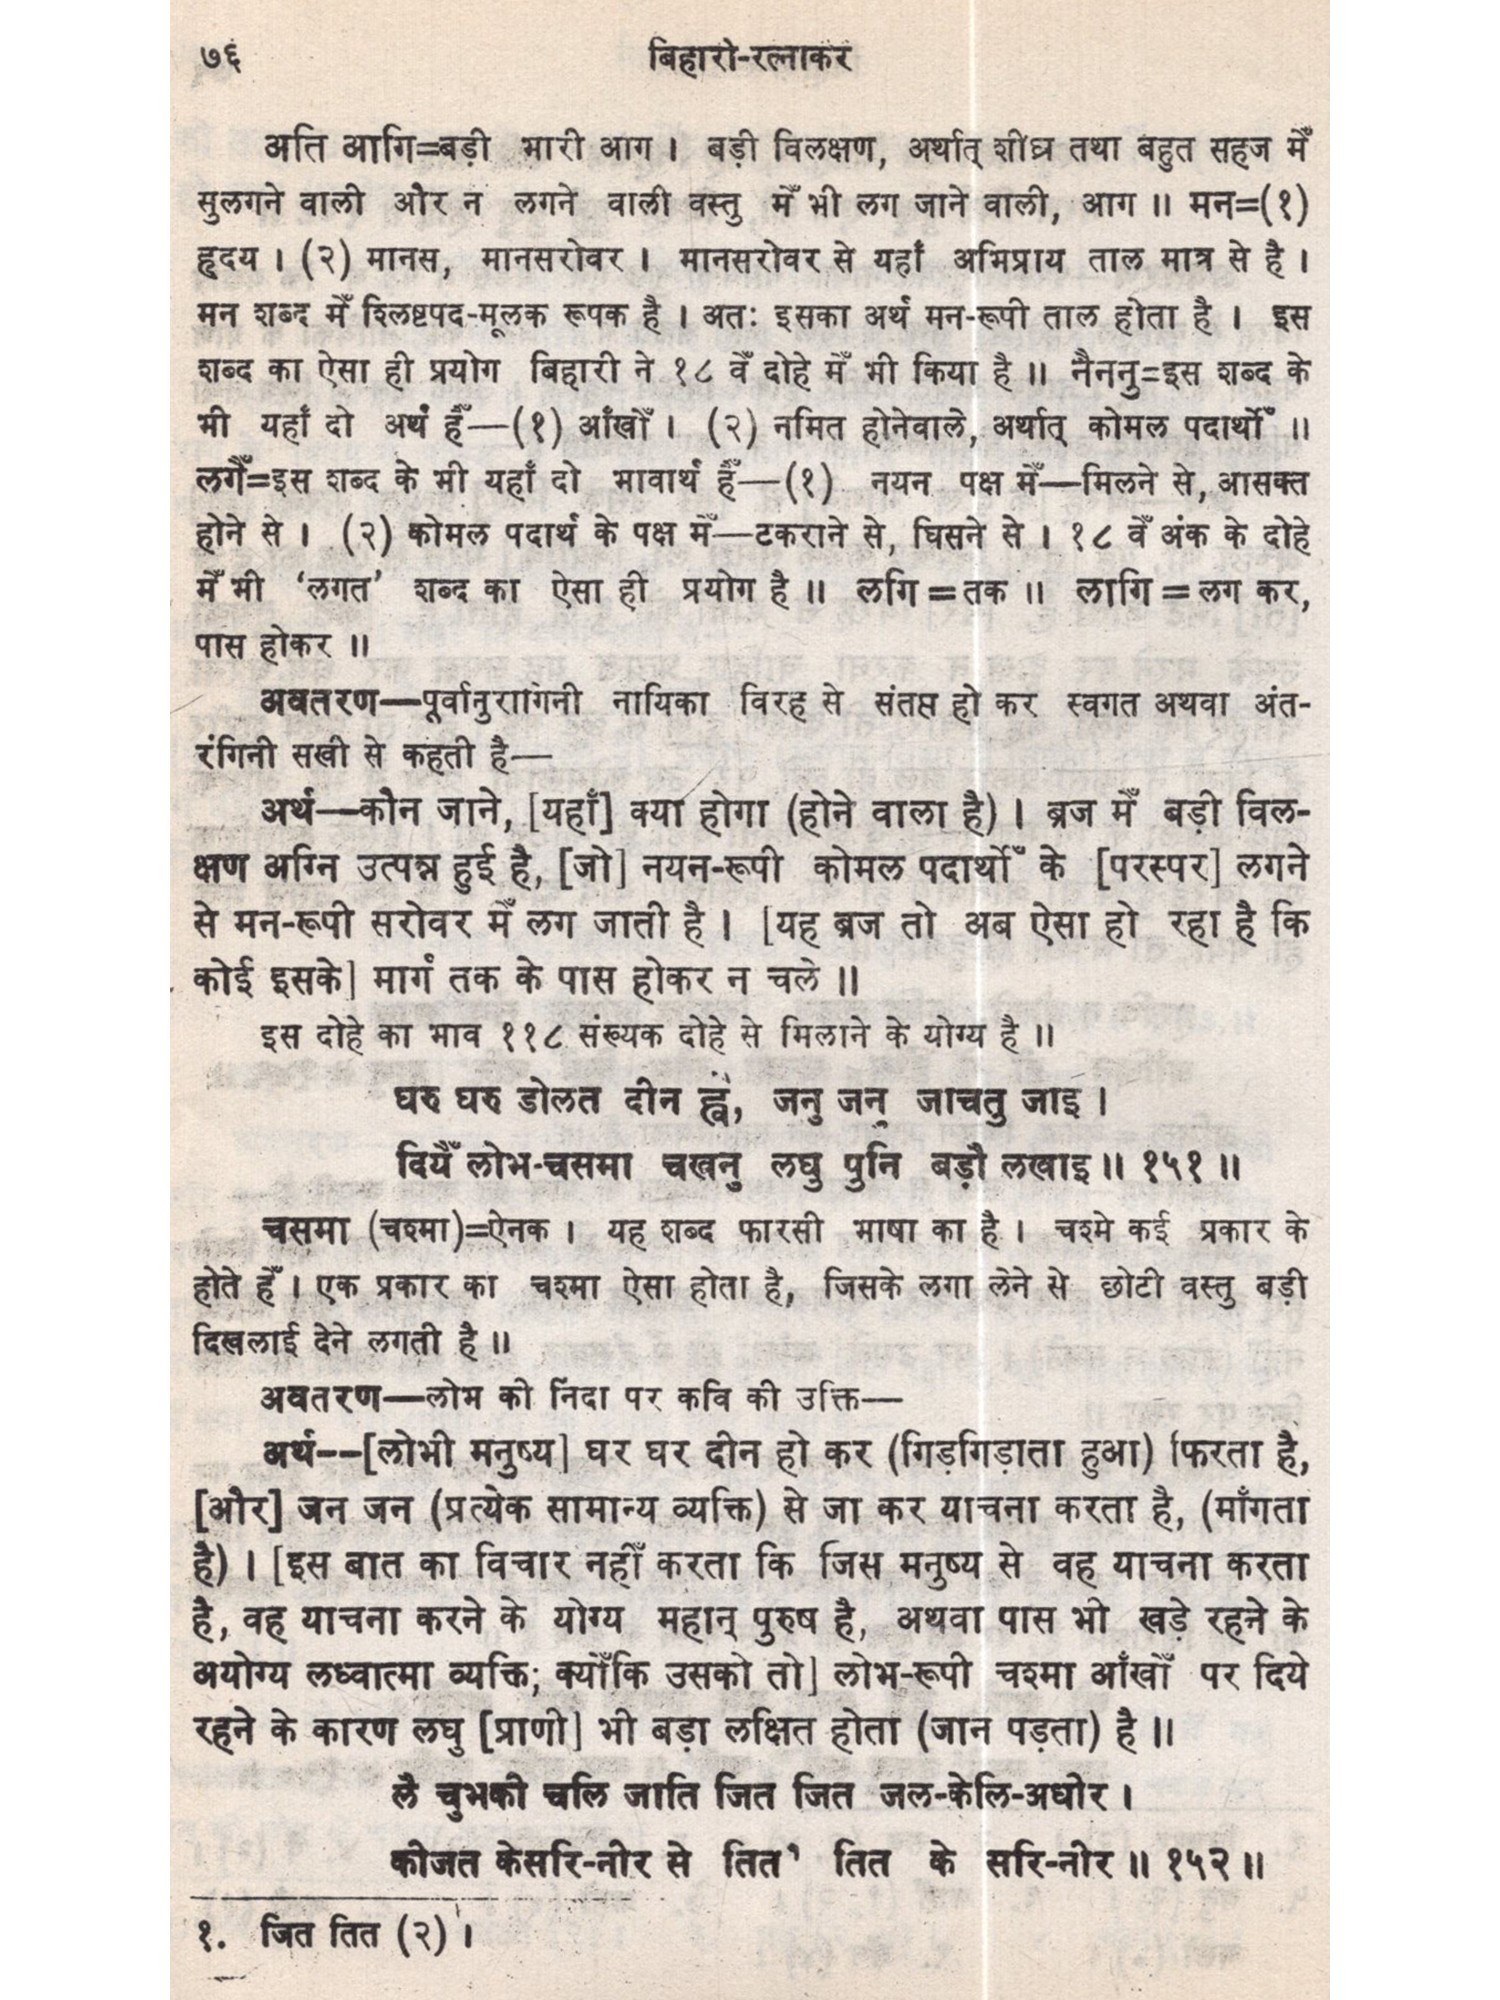 ७६
बिहारी-रत्नाकर
अति आगि=बड़ी भारी आग । बड़ी विलक्षण, अर्थात् शीघ्र तथा बहुत सहज मेँ
सुलगने वाली और न लगने वाली वस्तु मेँ भी लग जाने वाली, आग ॥ मन=(१)
हृदय । (२) मानस, मानसरोवर । मानसरोवर से यहाँ अभिप्राय ताल मात्र से है ।
मन शब्द मेँ श्लिष्टपद-मूलक रूपक है । अतः इसका अर्थ मन-रूपी ताल होता है । इस
शब्द का ऐसा ही प्रयोग बिहारी ने १८ वेँ दोहे मेँ भी किया है ॥ नैननु=इस शब्द के
भी यहाँ दो अर्थ हैँ—(१) आँखोँ । (२) नमित होनेवाले, अर्थात् कोमल पदार्थोँ ॥
लगैँ=इस शब्द के भी यहाँ दो भावार्थ हैँ—(१) नयन पक्ष मेँ—मिलने से, आसक्त
होने से । (२) कोमल पदार्थ के पक्ष मेँ—टकराने से, घिसने से । १८ वेँ अंक के दोहे
मेँ भी ‘लगत’ शब्द का ऐसा ही प्रयोग है ॥ लगि = तक ॥ लागि = लग कर,
पास होकर ॥
अवतरण—पूर्वानुरागिनी नायिका विरह से संतप्त हो कर स्वगत अथवा अंत-
रंगिनी सखी से कहती है—
अर्थ—कौन जाने, [यहाँ] क्या होगा (होने वाला है) । ब्रज मेँ बड़ी विल-
क्षण अग्नि उत्पन्न हुई है, [जो] नयन-रूपी कोमल पदार्थोँ के [परस्पर] लगने
से मन-रूपी सरोवर मेँ लग जाती है । [यह ब्रज तो अब ऐसा हो रहा है कि
कोई इसके] मार्ग तक के पास होकर न चले ॥
इस दोहे का भाव ११८ संख्यक दोहे से मिलाने के योग्य है ॥
घरु घरु डोलत दीन ह्वै, जनु जनु जाचतु जाइ ।
दियैँ लोभ-चसमा चखनु लघु पुनि बड़ौ लखाइ ॥ १५१ ॥
चसमा (चश्मा)=ऐनक । यह शब्द फारसी भाषा का है । चश्मे कई प्रकार के
होते हेँ । एक प्रकार का चश्मा ऐसा होता है, जिसके लगा लेने से छोटी वस्तु बड़ी
दिखलाई देने लगती है ॥
अवतरण—लोभ की निंदा पर कवि की उक्ति—
अर्थ--[लोभी मनुष्य] घर घर दीन हो कर (गिड़गिड़ाता हुआ) फिरता है,
[और] जन जन (प्रत्येक सामान्य व्यक्ति) से जा कर याचना करता है, (माँगता
है) । [इस बात का विचार नहीँ करता कि जिस मनुष्य से वह याचना करता
है, वह याचना करने के योग्य महान् पुरुष है, अथवा पास भी खड़े रहने के
अयोग्य लध्वात्मा व्यक्ति; क्योँकि उसको तो] लोभ-रूपी चश्मा आँखोँ पर दिये
रहने के कारण लघु [प्राणी] भी बड़ा लक्षित होता (जान पड़ता) है ॥
लै चुभकी चलि जाति जित जित जल-केलि-अधीर ।
कीजत केसरि-नीर से तित१ तित के सरि-नीर ॥ १५२ ॥
१. जित तित (२) ।